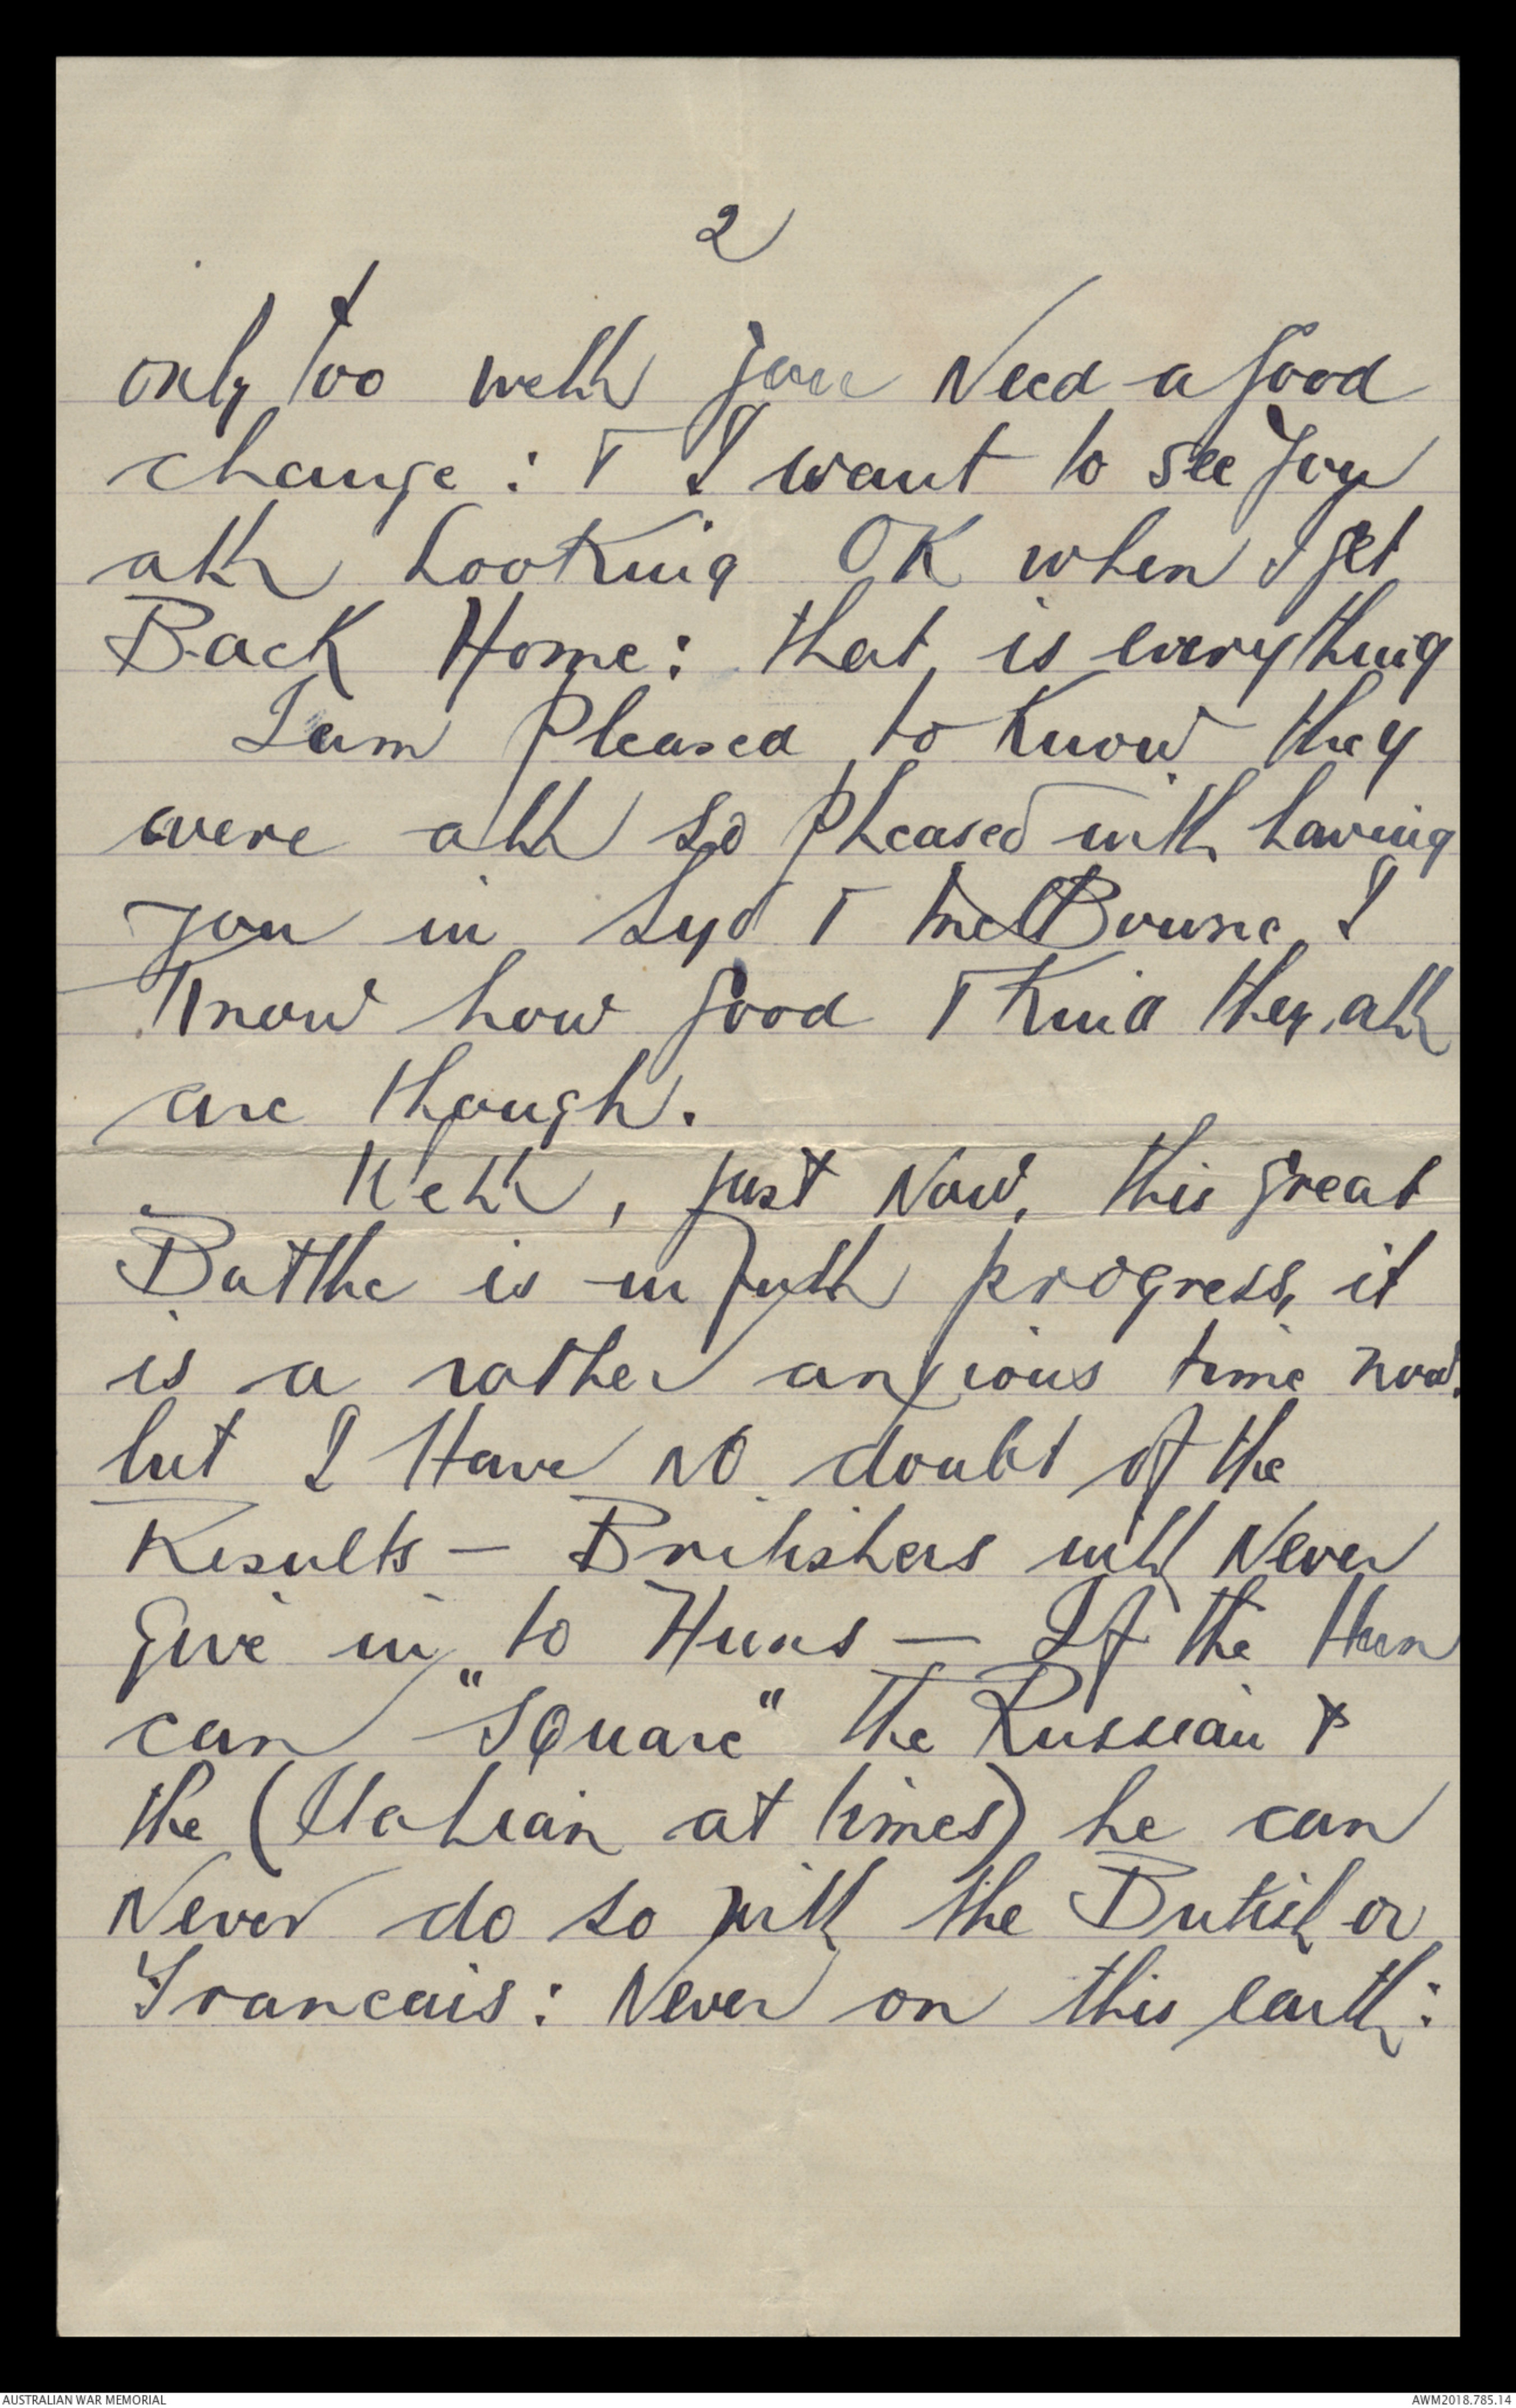 2
only too well you Need a good
change: & I want to see you
all Looking OK when I get
Back Home: that is everything
I am Pleased to Know they
were all so Pleased with having
you in Syd & MelBourne I
Know how good & Kind they all
are though.
Well, just Now, this great
Battle is in full progress, it
is a rather anxious time now.
but I Have NO doubt of the
Results - Britishers will Never
give in to Huns - If the Hun
can "Square" the Russian &
the (Italian at times) he can
Never do so with the British or
Francais: Never on this earth:
AUSTRALIAN WAR MEMORIAL
AWM2018.785.14